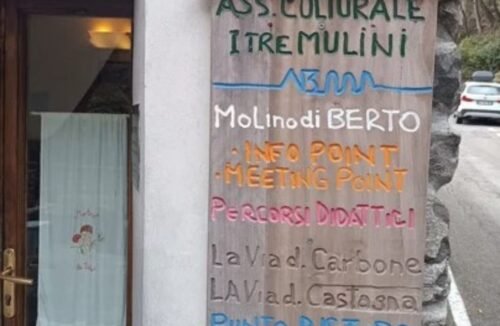 ASS. CULTURALE
I TRE MULINI
Molino di BERTO
· INFO POINT
· MEETING POINT
PERCORSI DIDATTICI
LA Via d. Carbone
LA Via d. Castagna
PUNTO RISTORO